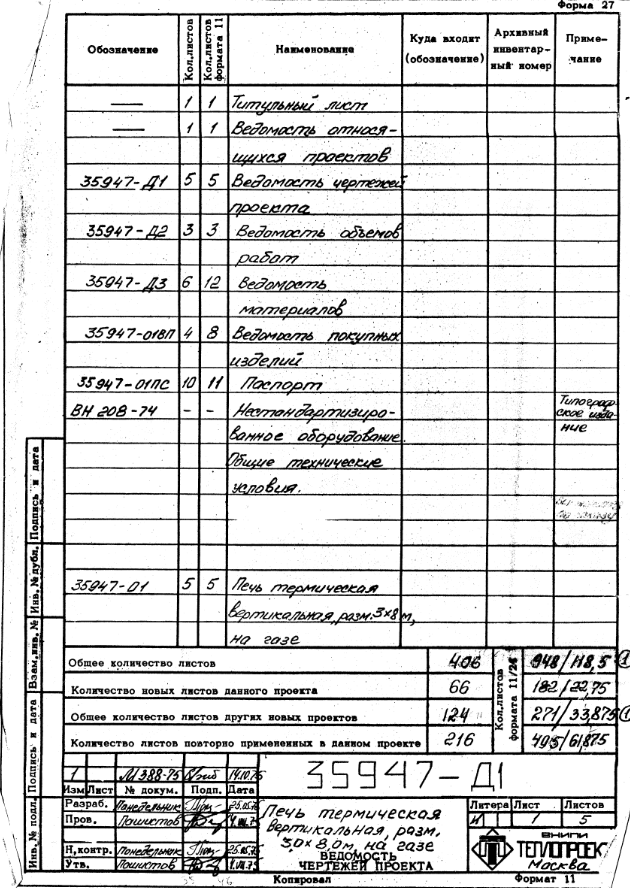 Форма 27
Обозначение Кол.листов Кол.листов формата 11 Наименование Куда входит (обозначение) Архивный инвентарный номер Примечание
— 1 1 Титульный лист
— 1 1 Ведомость относя-
щихся проектов
35947-Д1 5 5 Ведомость чертежей
проекта
35947-Д2 3 3 Ведомость объемов
работ
35947-Д3 6 12 Ведомость
материалов
35947-01ВП 4 8 Ведомость покупных
изделий
35947-01ПС 10 11 Паспорт
ВН 208-74 - - Нестандартизиро- Типограф
ское изда
ние
ванное оборудование
Общие технические
условия.
35947-01 5 5 Печь термическая
вертикальная, разм. 3×8 м,
на газе
Общее количество листов 406 948/118,5 1
Количество новых листов данного проекта 66 182/22,75
Общее количество листов других новых проектов 124 271/33,875 1
Количество листов повторно примененных в данном проекте 216 495/61,875
Кол.листов формата 11/24
Инв. № подл. Подпись и дата Взам.инв. № Инв. № дубл. Подпись и дата
1 М388-75 14.10.75
Изм Лист № докум. Подп. Дата
35947-Д1
Разраб. Понедельник 26.05.75
Пров. Пашистов
Н.контр. Понедельник 26.05.75
Утв. Пашистов
Печь термическая
вертикальная, разм.
3,0×8,0м, на газе
ВЕДОМОСТЬ
ЧЕРТЕЖЕЙ ПРОЕКТА
Литера Лист Листов
И 1 5
ВНИПИ
ТЕПЛОПРОЕКТ
Москва
Копировал Формат 11